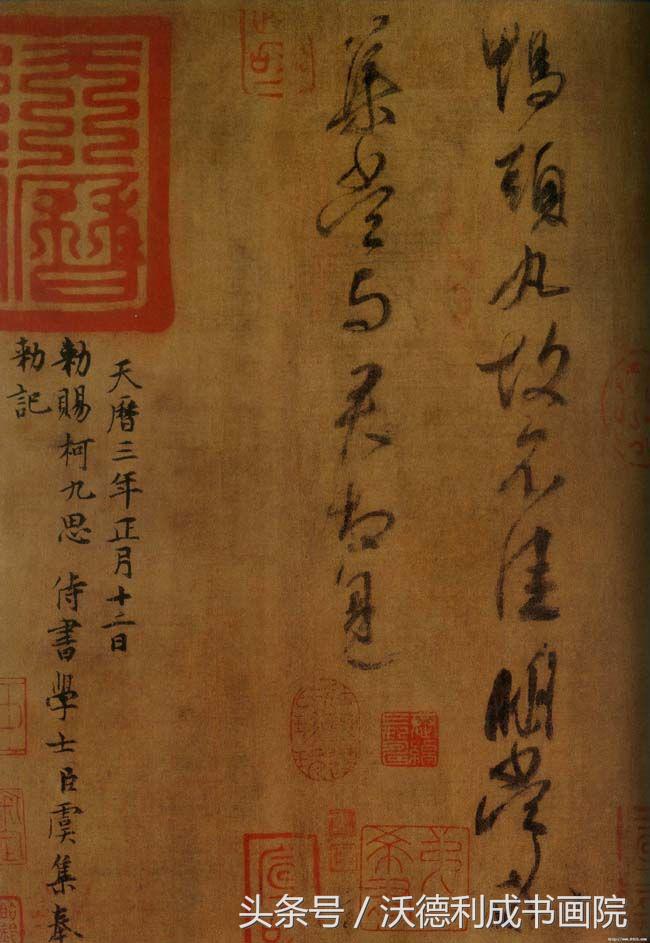 鴨頭丸故不佳明當必
集當与君相見
天曆三年正月十二日
勅賜柯九思 侍書學士臣虞集奉
勅記
天曆
头条号 / 沃德利成书画院